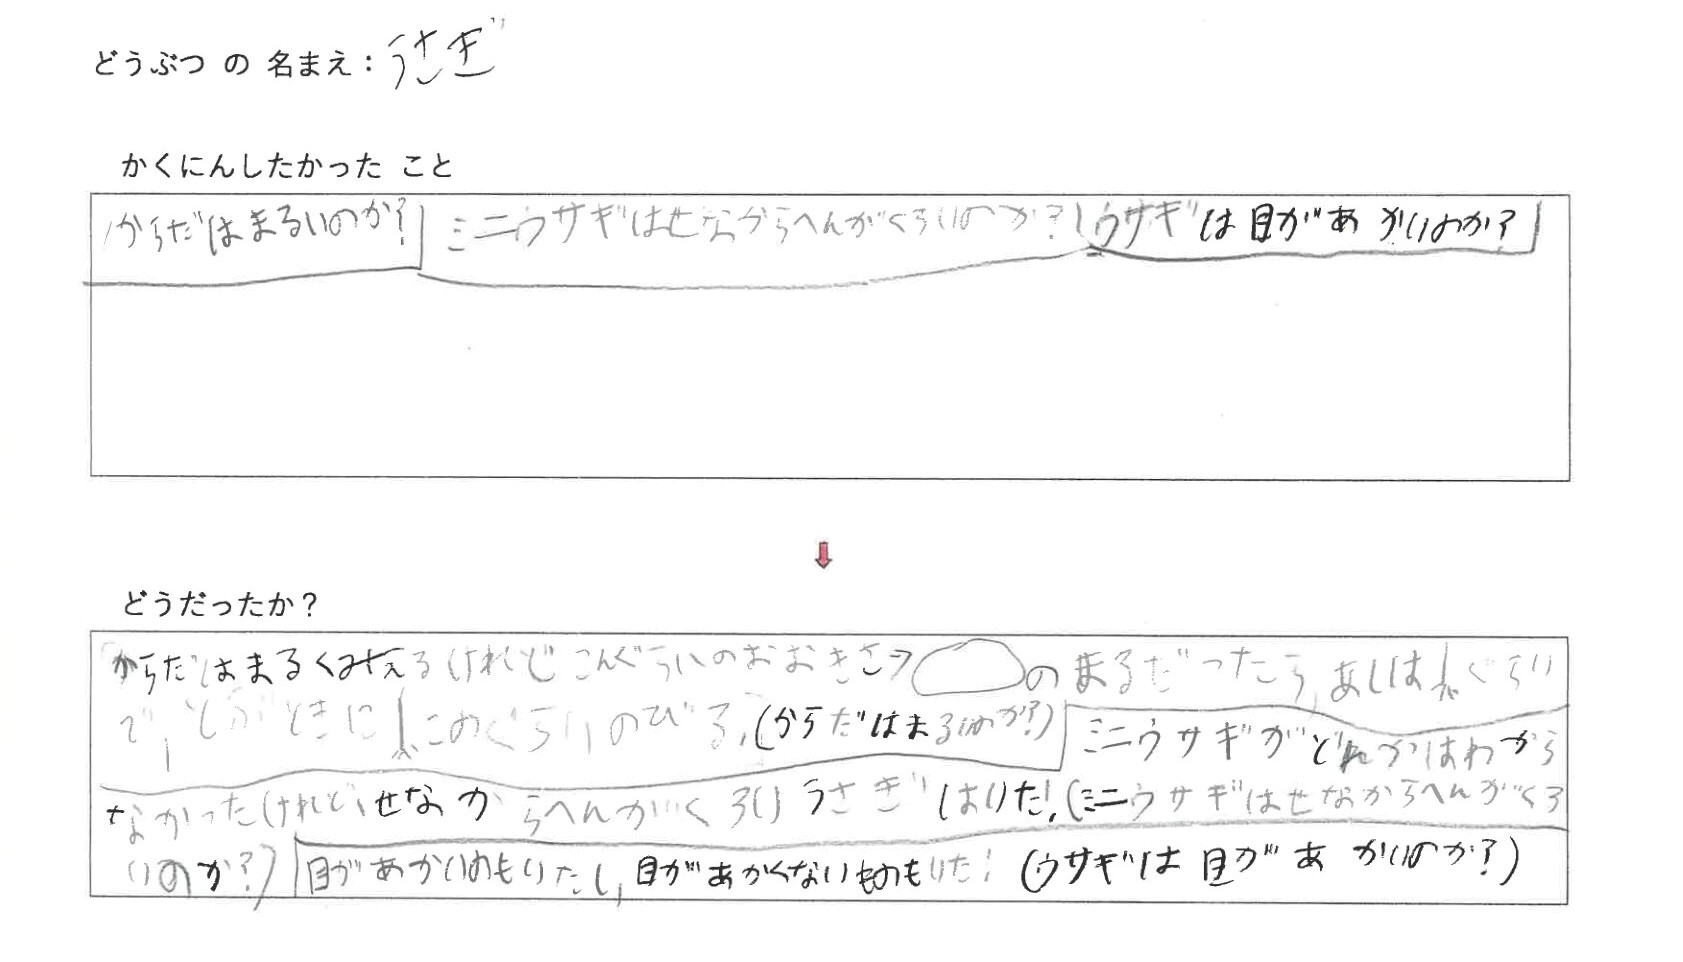 どうぶつ の 名まえ：うさぎ
かくにんしたかった こと
からだはまるいのか？ ミニウサギはせなからへんがくろいのか？ ウサギは目があかいのか？
どうだったか？
からだはまるくみえるけれどこんぐらいのおおきさ→のまるだったら、あしはぐらい
で、しがときにこのぐらいのびる、(からだはまるいのか？) ミニウサギがどれかはわから
なかったけれど、せなからへんがくろいうさぎはいた！(ミニウサギはせなからへんがくろ
いのか？) 目があかいのもいたし、目があかくないものもいた！ (ウサギは目があかいのか？)